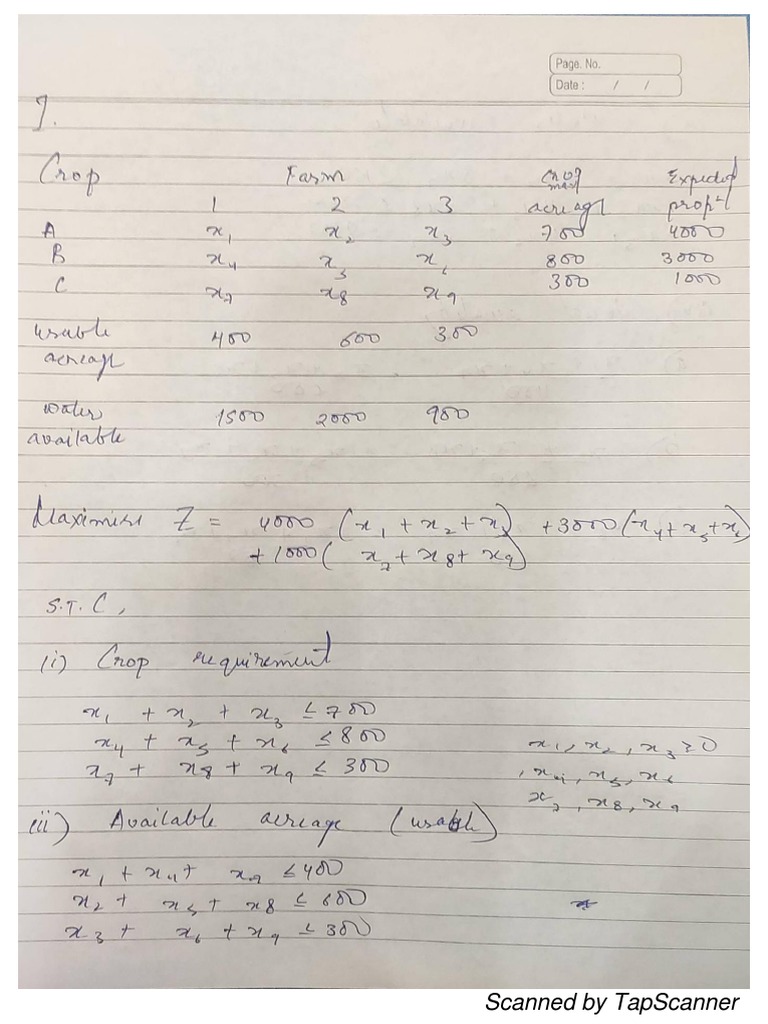 Page. No.
Date : / /
7.
Crop Farm crop max acreage Expected profit
1 2 3
A x₁ x₂ x₃ 700 4000
B x₄ x₅ x₆ 800 3000
C x₇ x₈ x₉ 300 1000
usable acreage 400 600 300
water available 1500 2000 900
Maximise Z = 4000 (x₁ + x₂ + x₃) + 3000 (x₄ + x₅ + x₆)
+ 1000 ( x₇ + x₈ + x₉)
S.T.C,
(i) Crop requirement
x₁ + x₂ + x₃ ≤ 700
x₄ + x₅ + x₆ ≤ 800
x₇ + x₈ + x₉ ≤ 300
x₁, x₂, x₃ ≥ 0
, x₄, x₅, x₆
x₇, x₈, x₉
(ii) Available acreage (usable)
x₁ + x₄ + x₇ ≤ 400
x₂ + x₅ + x₈ ≤ 600
x₃ + x₆ + x₉ ≤ 300
Scanned by TapScanner